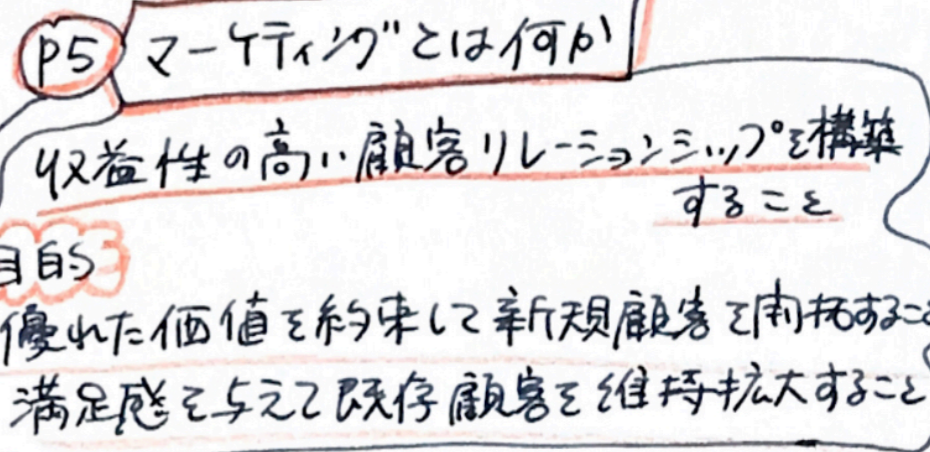 P5 マーケティングとは何か
収益性の高い顧客リレーションシップを構築
すること
目的
優れた価値を約束して新規顧客を開拓すること
満足感を与えて既存顧客を維持拡大すること